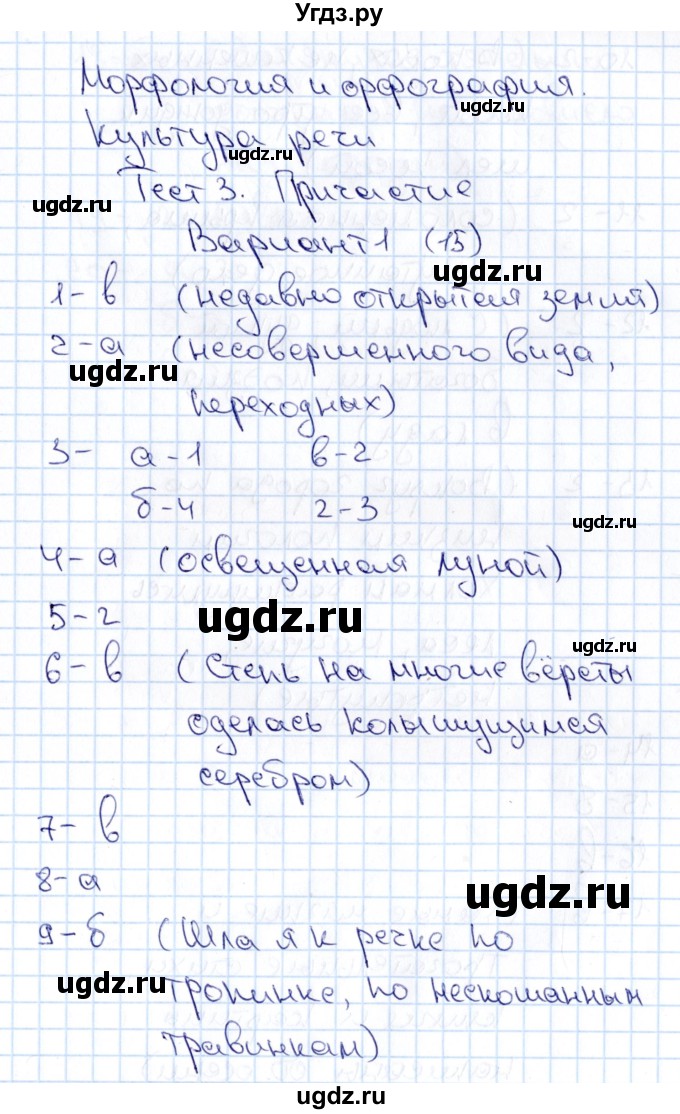 Угдз.ру
Морфология и орфография.
ugdz.ru
Культура речи
ugdz.ru
Тест 3. Причастие
ugdz.ru
Вариант 1 (15)
ugdz.ru
1- в (недавно открытая земля)
2- а (несовершенного вида,
ugdz.ru
переходных)
3- а-1 в-2
б-4 г-3
ugdz.ru
4- а (освещенная луной)
ugdz.ru
5- г
6- в (Степь на многие вёрсты
ugdz.ru
оделась колышущимся
серебром)
7- в
8- а
ugdz.ru
9- б (Шла я к речке по
ugdz.ru
тропинке, по нескошанным
травинкам)
ugdz.ru